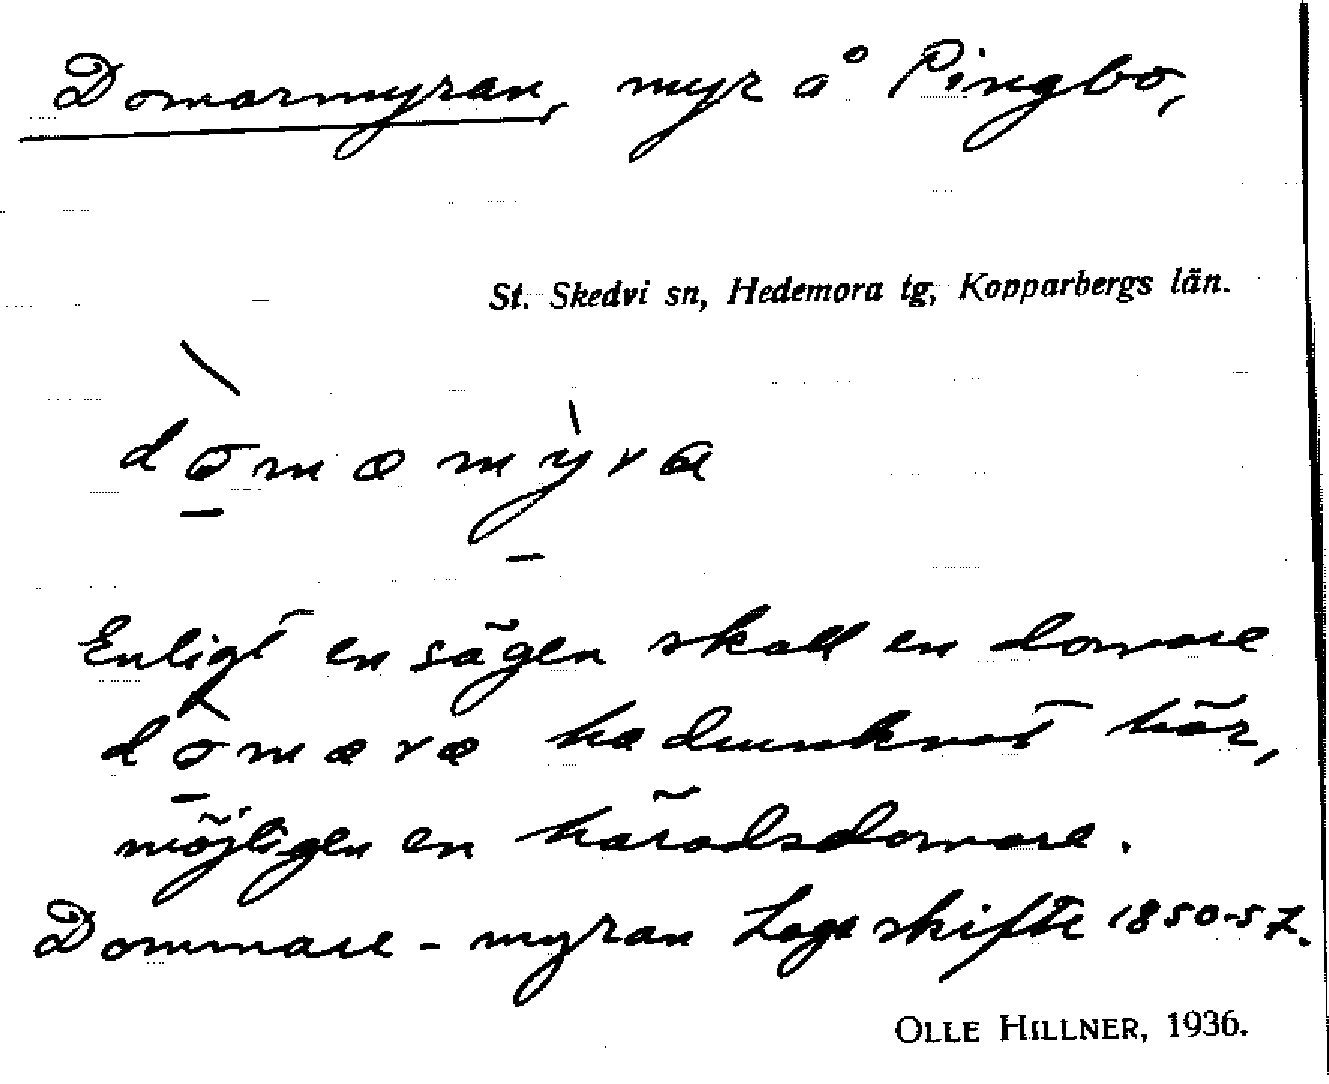 Domarmyran, myr å Pingbo,
St. Skedvi sn, Hedemora tg, Kopparbergs län.
dòmæmỳra
Enligt en sägen skall en domare
dòmæræ ha drunknat här,
möjligen en häradsdomare.
Dommare-myran Laga skifte 1850-57.
OLLE HILLNER, 1936.